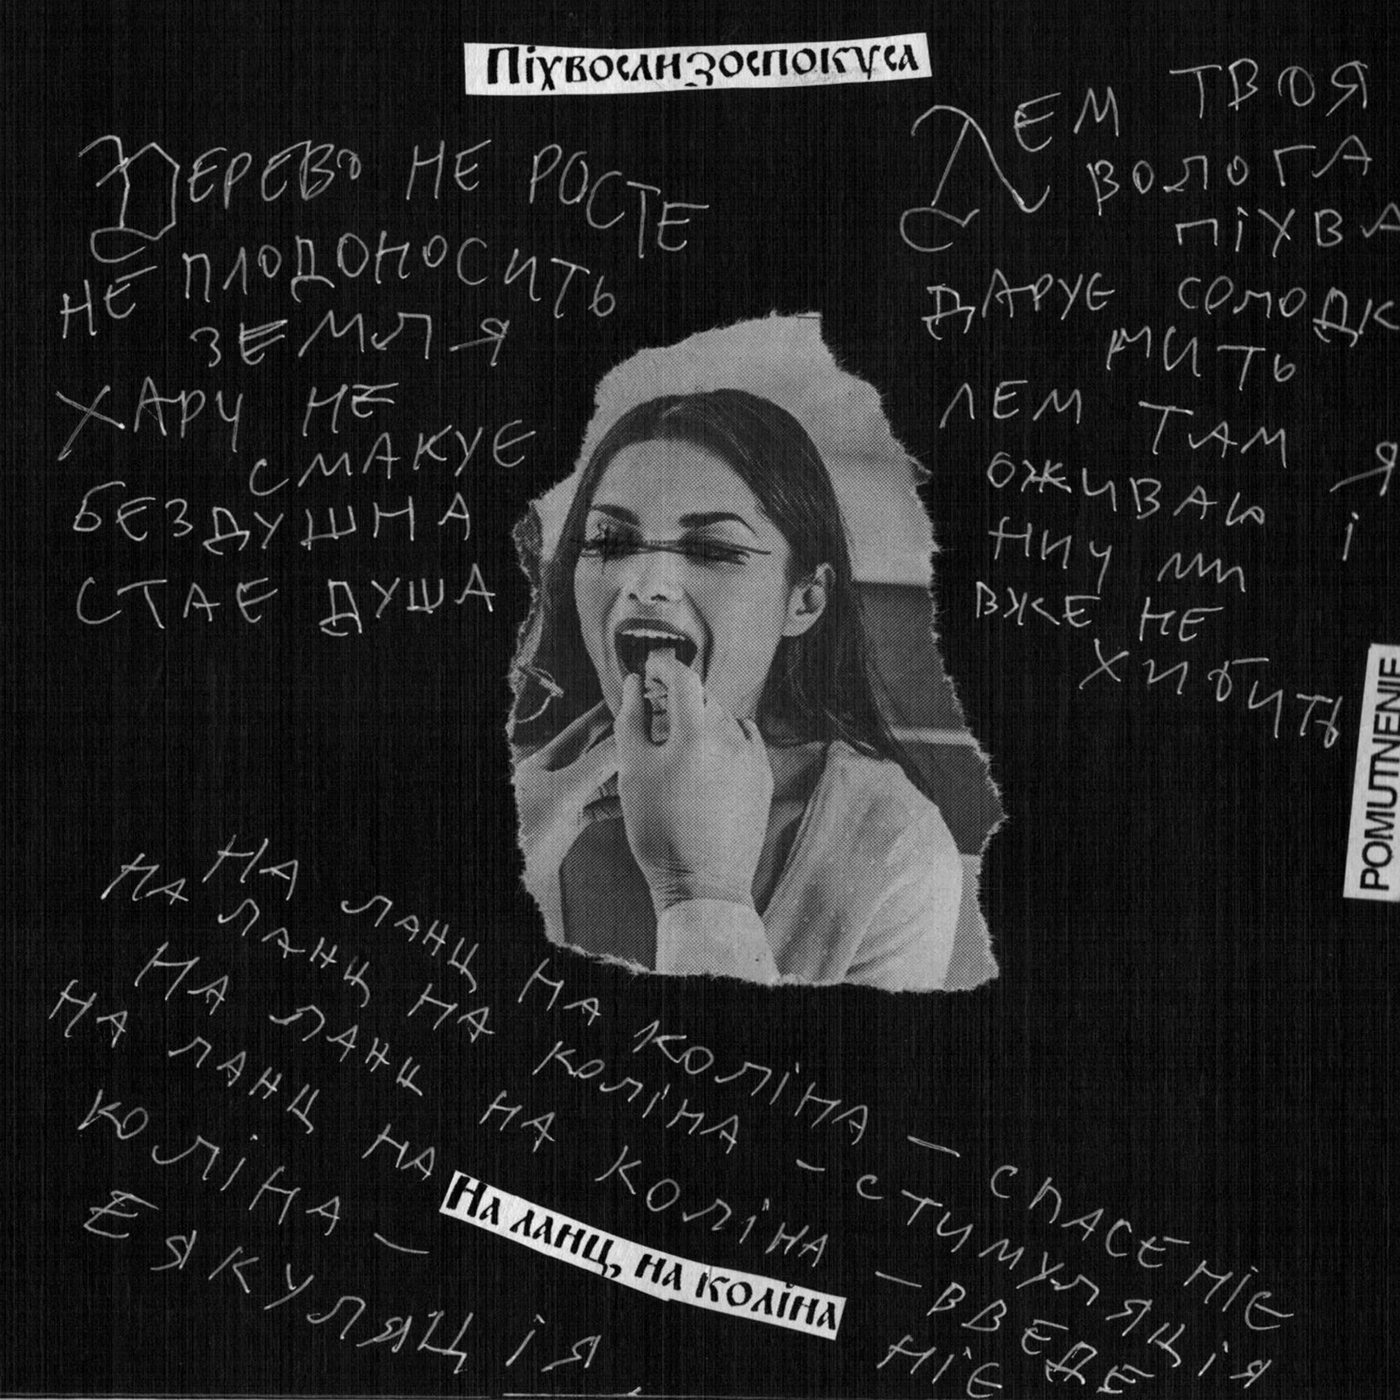 Піхвослизоспокуса
Дерево не росте
не плодоносить
земля
хару не
смакує
бездушна
стає душа
Лем твоя
волога
піхва
дарує солодк
мить
лем там я
оживаю і
нич ми
вже не
хибить
POMUTNENIE
на ланц на коліна – спасеніє
на ланц на коліна – стимуляція
на ланц на коліна – введе
нієе
на ланц на
коліна –
еякуляція
На ланц, на коліна